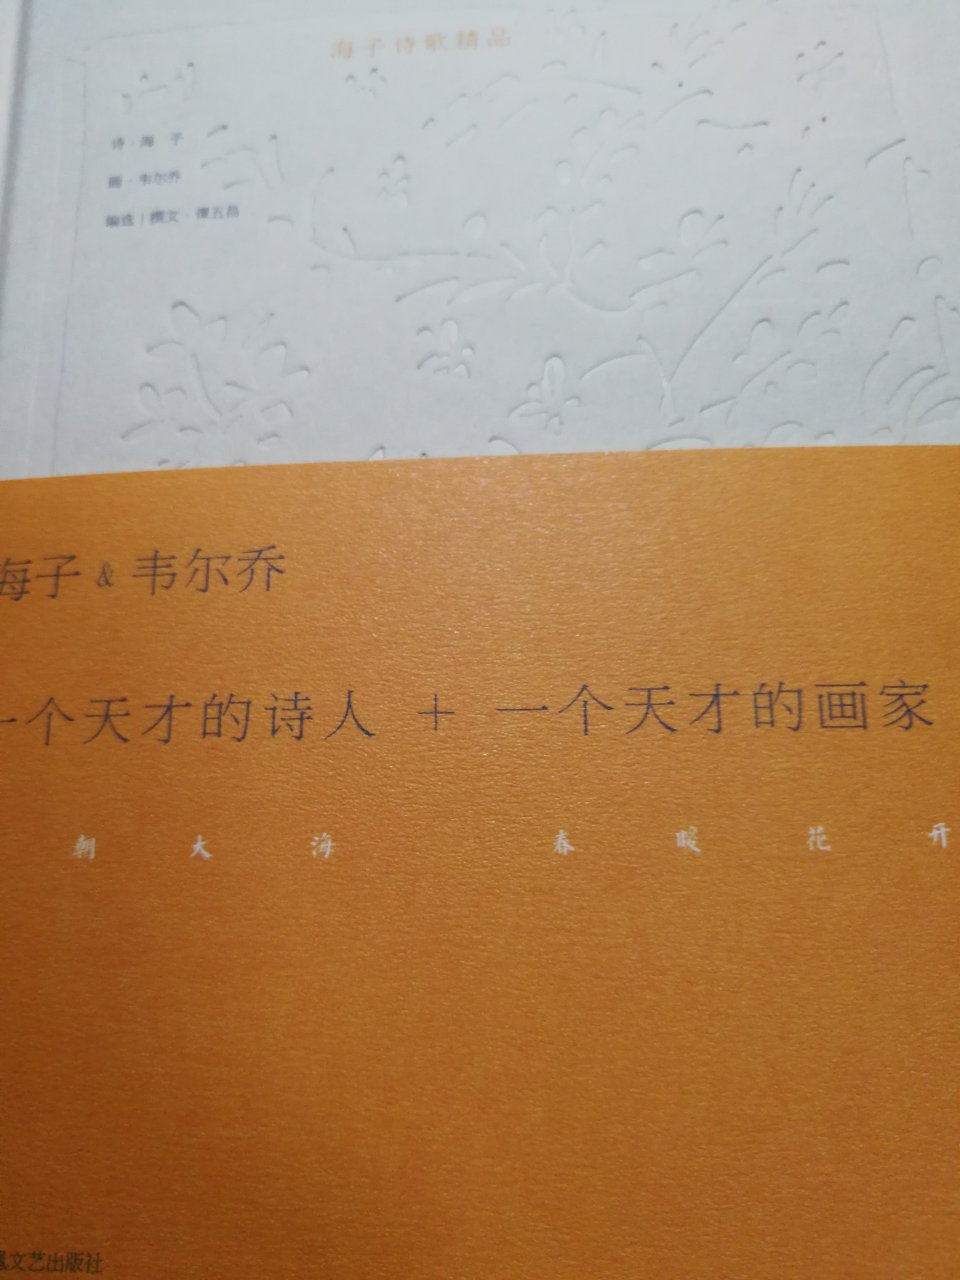 海子诗歌精品
诗·海 子
画·韦尔乔
编选|撰文·谭五昌
海子 & 韦尔乔
一个天才的诗人 + 一个天才的画家
朝大海 春暖花开
文艺出版社